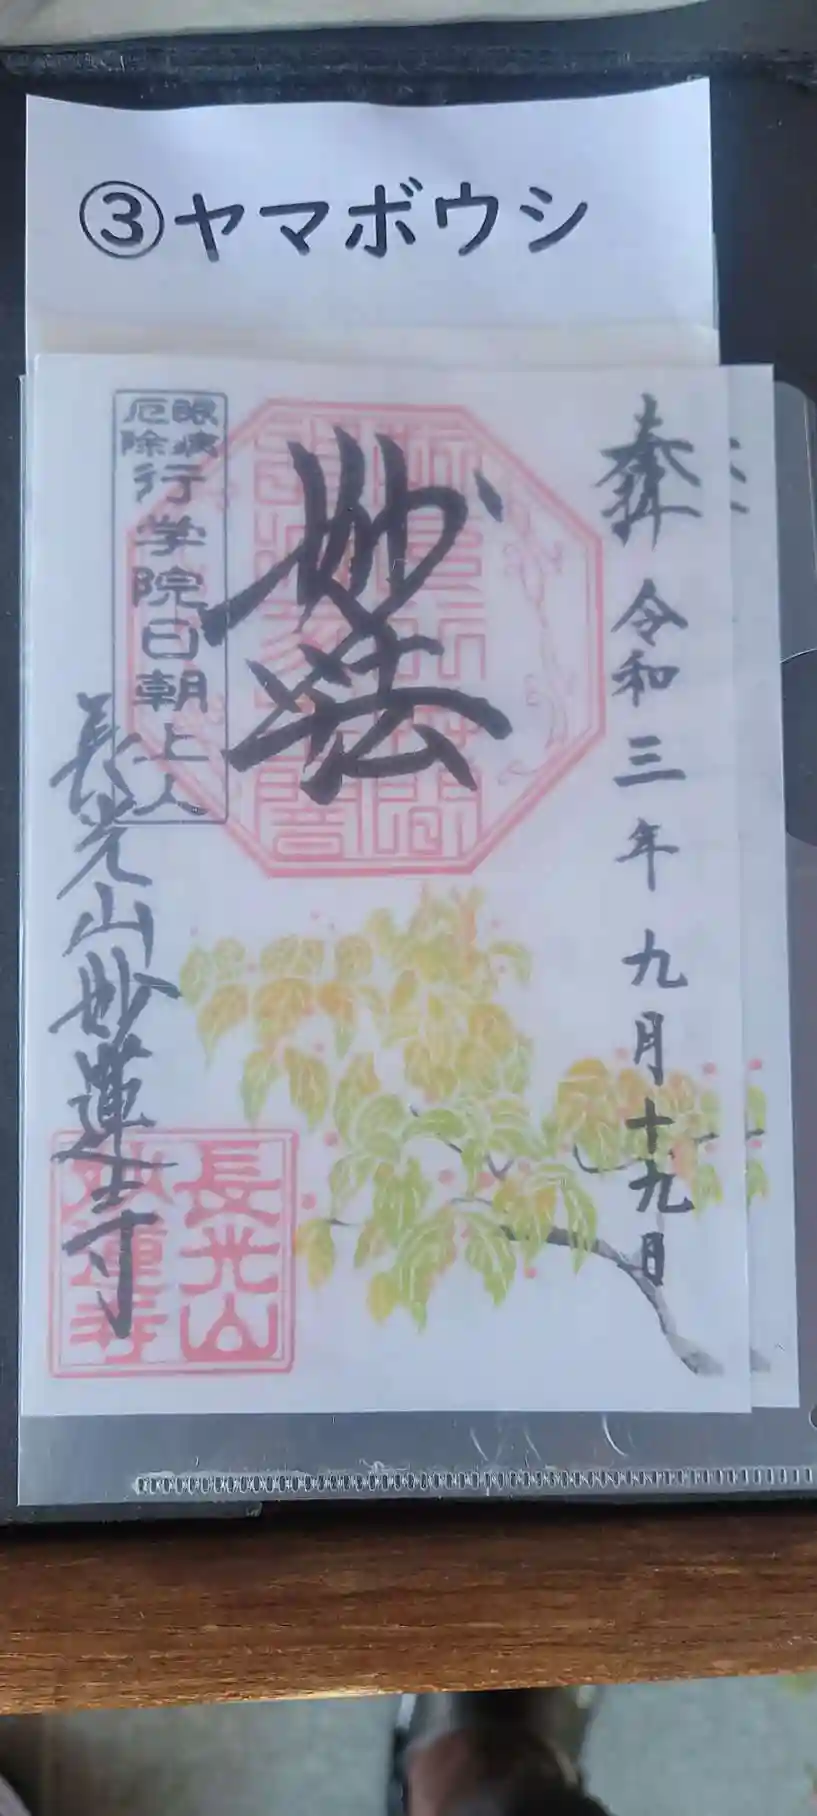 ③ヤマボウシ
奉拝
令和三年九月十九日
妙法
眼病
厄除
行学院日朝上人
長光山妙蓮寺
長光山
妙蓮寺